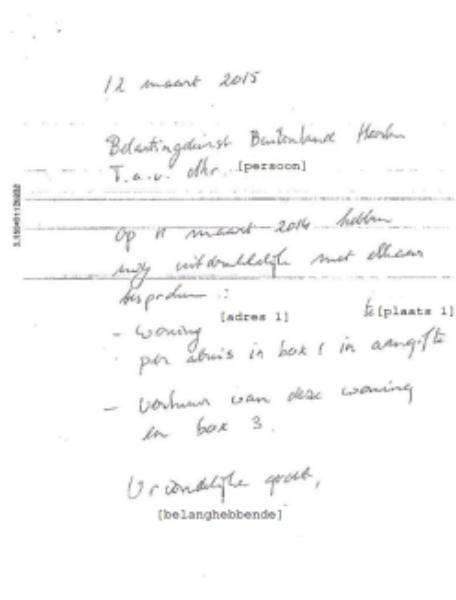 12 maart 2015
Belastingdienst Buitenland Heerlen
T.a.v. dhr. [persoon]
Op 11 maart 2014 hebben
wij uitdrukkelijk met elkaar
besproken :
[adres 1] te [plaats 1]
- woning
per abuis in box 1 in aangifte
- verhuur van deze woning
en box 3.
Vriendelijke groet,
[belanghebbende]